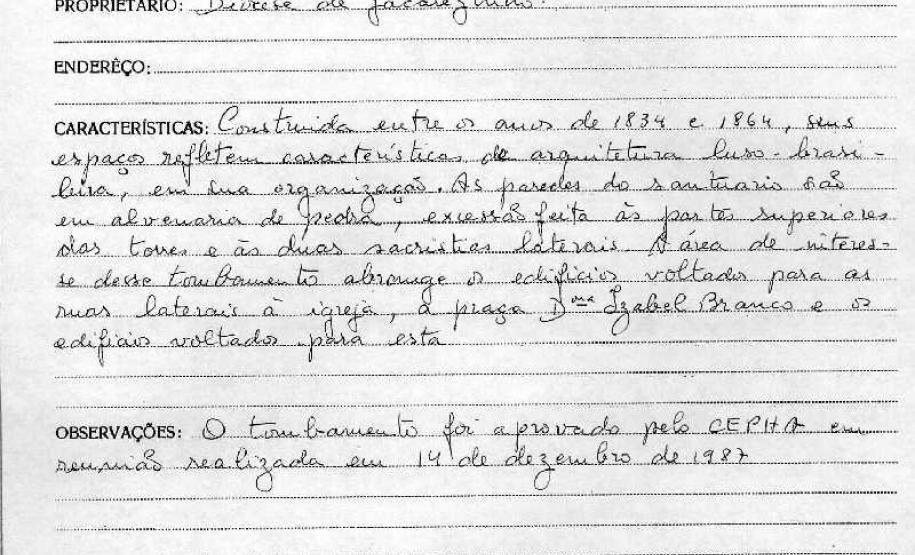 PROPRIETÁRIO: Diocese de Jacarezinho.
ENDERÊÇO:
CARACTERÍSTICAS: Construida entre os anos de 1834 e 1864, seus
espaços refletem características de arquitetura luso-brasi-
leira, em sua organização. As paredes do santuario são
em alvenaria de pedra, excessão feita às partes superiores
das torres e às duas sacristias laterais. A área de interes-
se desse tombamento abrange os edifícios voltados para as
ruas laterais à igreja, a praça Dna Izabel Branco e os
edifícios voltados para esta
OBSERVAÇÕES: O tombamento foi aprovado pelo CEPHA em
reunião realizada em 14 de dezembro de 1987